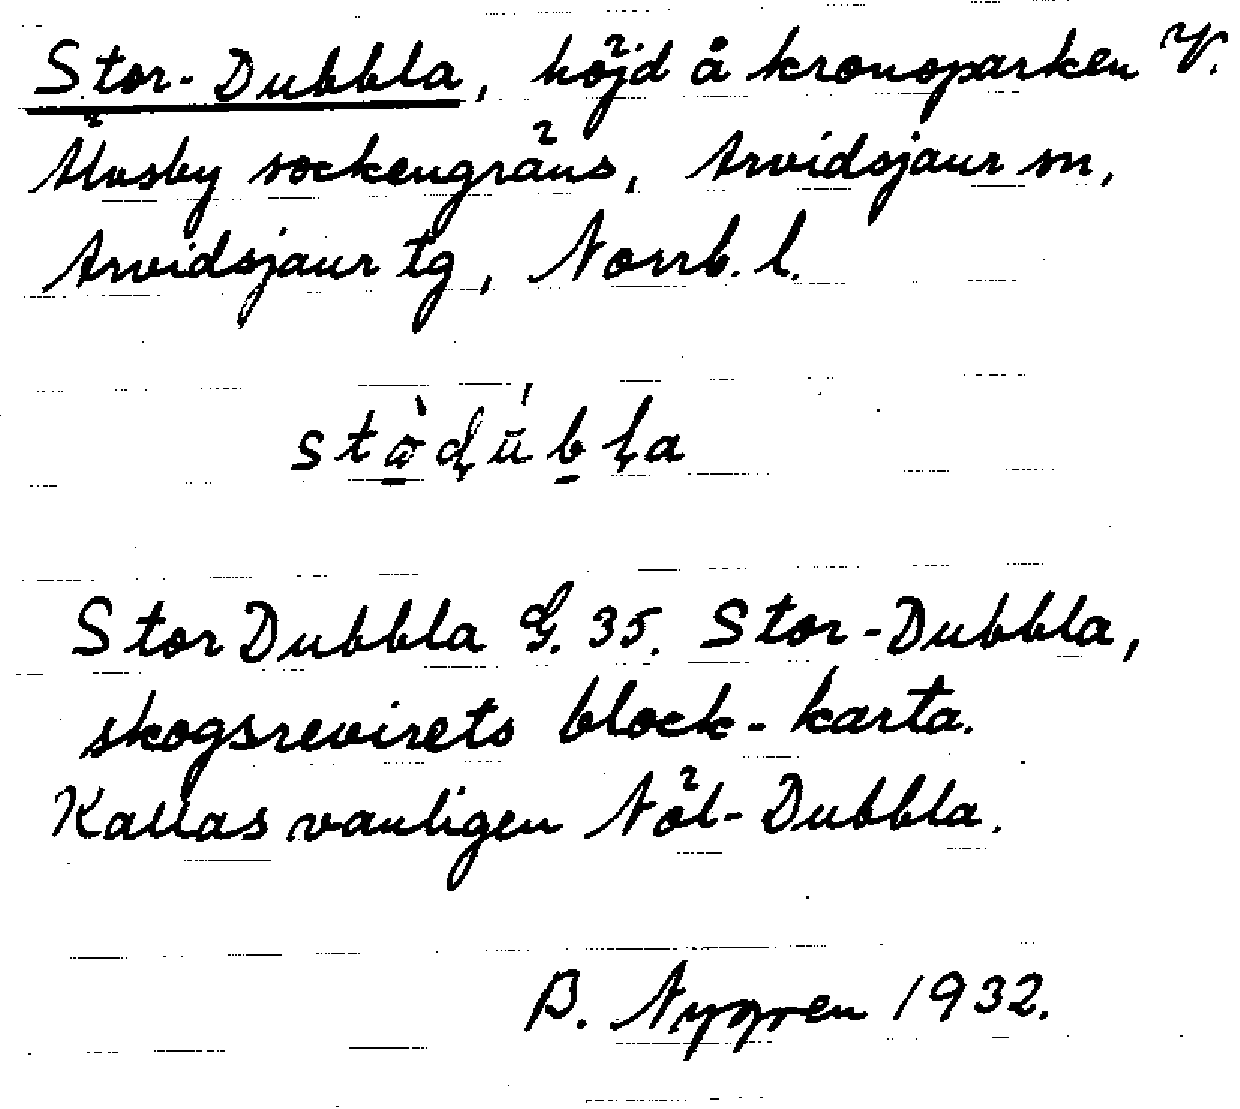 Stor-Dubbla, höjd å kronoparken V.
Älvsby sockengräns, Arvidsjaur sn,
Arvidsjaur tg, Norrb. l.
Stor Dubbla G. 35. Stor-Dubbla,
skogsrevirets block-karta.
Kallas vanligen Nöl-Dubbla.
B. Nygren 1932.